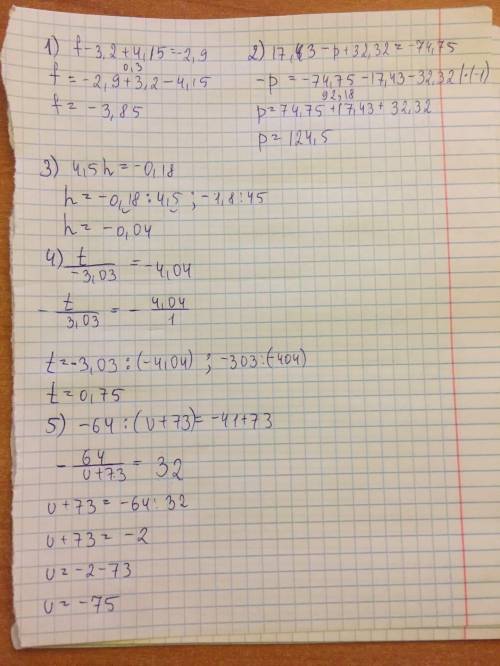 1) f-3,2+4,15=-2,9
0,3
f=-2,9+3,2-4,15
f=-3,85
2) 17,43-p+32,32=-74,75
-p=-74,75-17,43-32,32|·(-1)
92,18
p=74,75+17,43+32,32
p=124,5
3) 4,5h=-0,18
h=-0,18:4,5;-1,8:45
h=-0,04
4) t/-3,03=-4,04
-t/3,03=-4,04/1
t=-3,03:(-4,04);-303:(-404)
t=0,75
5) -64:(v+73)=-41+73
-64/v+73=32
v+73=-64:32
v+73=-2
v=-2-73
v=-75